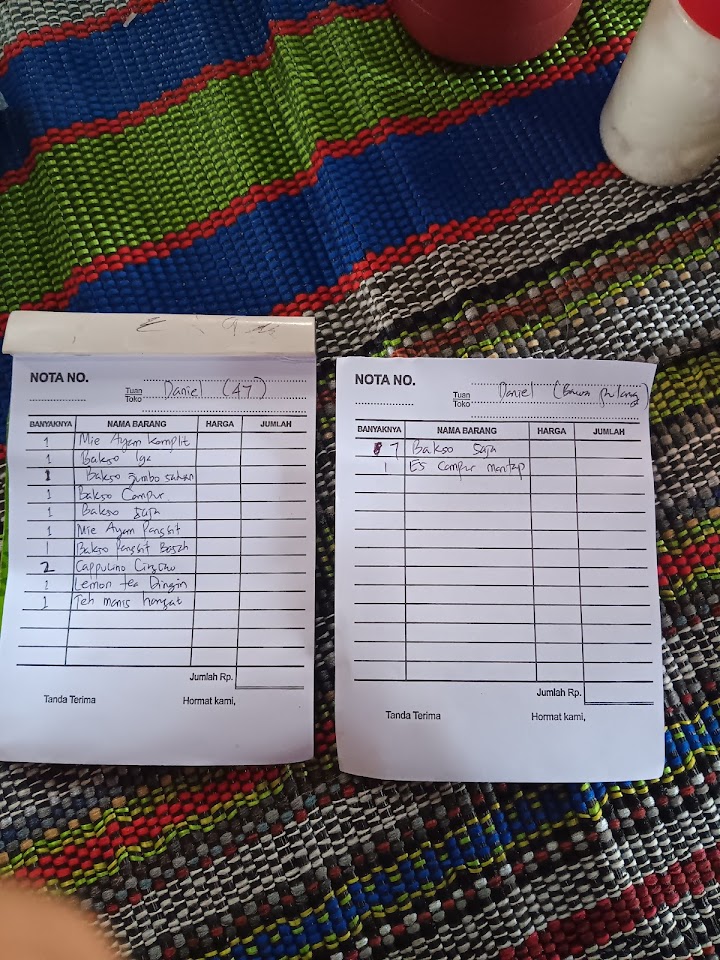 NOTA NO.
Tuan
Toko
Daniel (47)
BANYAKNYA NAMA BARANG HARGA JUMLAH
1 Mie Ayam komplit
1 Bakso Iga
1 Bakso jumbo
1 Bakso Campur
1 Bakso saja
1 Mie Ayam Pangsit
1 Bakso Pangsit Basah
2 Cappucino Cincau
1 Lemon tea Dingin
1 Teh manis hangat
Jumlah Rp.
Tanda Terima Hormat kami,
NOTA NO.
Tuan
Toko
Daniel (Bawa pulang)
BANYAKNYA NAMA BARANG HARGA JUMLAH
7 Bakso saja
1 Es Campur mantap
Jumlah Rp.
Tanda Terima Hormat kami,